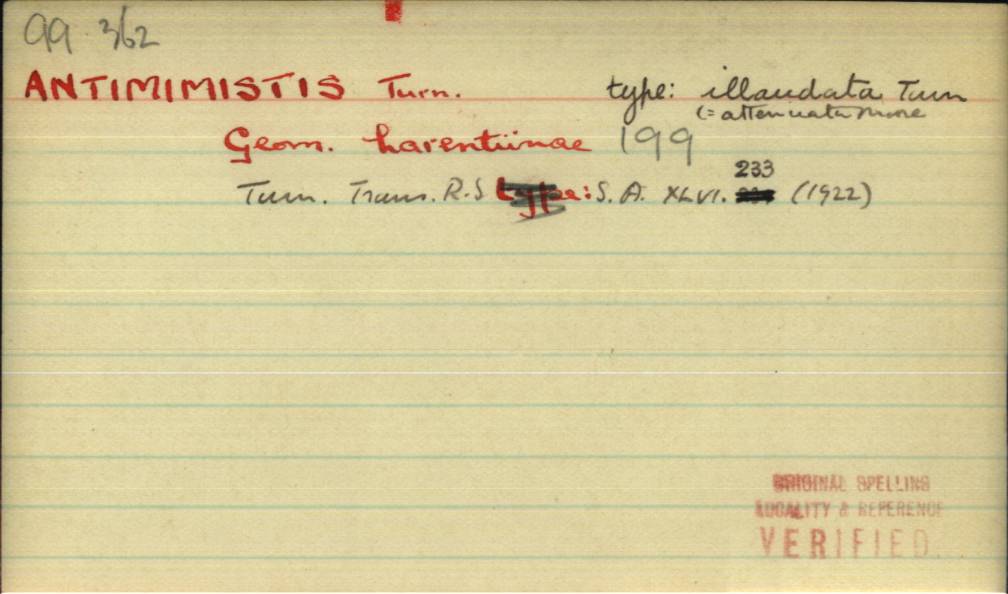 99.362
ANTIMIMISTIS Turn. type: illaudata Turn
(= attenuata Moore
Geom. Larentiinae 199
233
Turn. Trans. R.S type: S. A. XLVI. (1922)
ORIGINAL SPELLING
LOCALITY & REFERENCE
VERIFIED